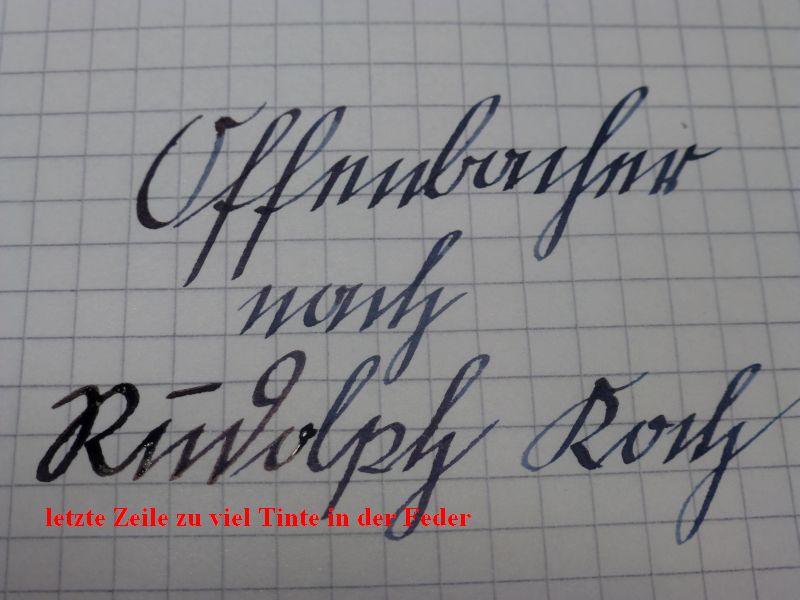 Offenbacher
nach
Rudolph Koch
letzte Zeile zu viel Tinte in der Feder